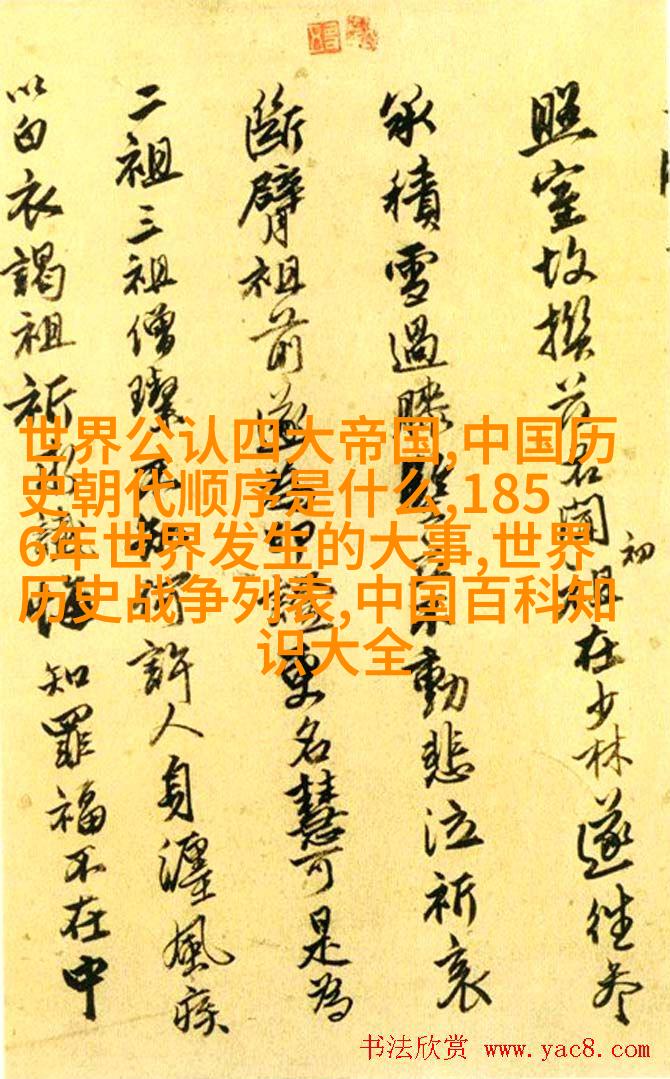 照室故撰名初祖在少林遂往參
承積雪過膝動悲泣祈哀
斷臂祖前遂更名慧可是為
二祖三祖僧璨許人身纏風疾
以白衣謁祖祈知罪福不在中
世界公认四大帝国,中国历
史朝代顺序是什么,185
6年世界发生的大事,世界
历史战争列表,中国百科知
识大全
书法欣赏 www.yac8.com